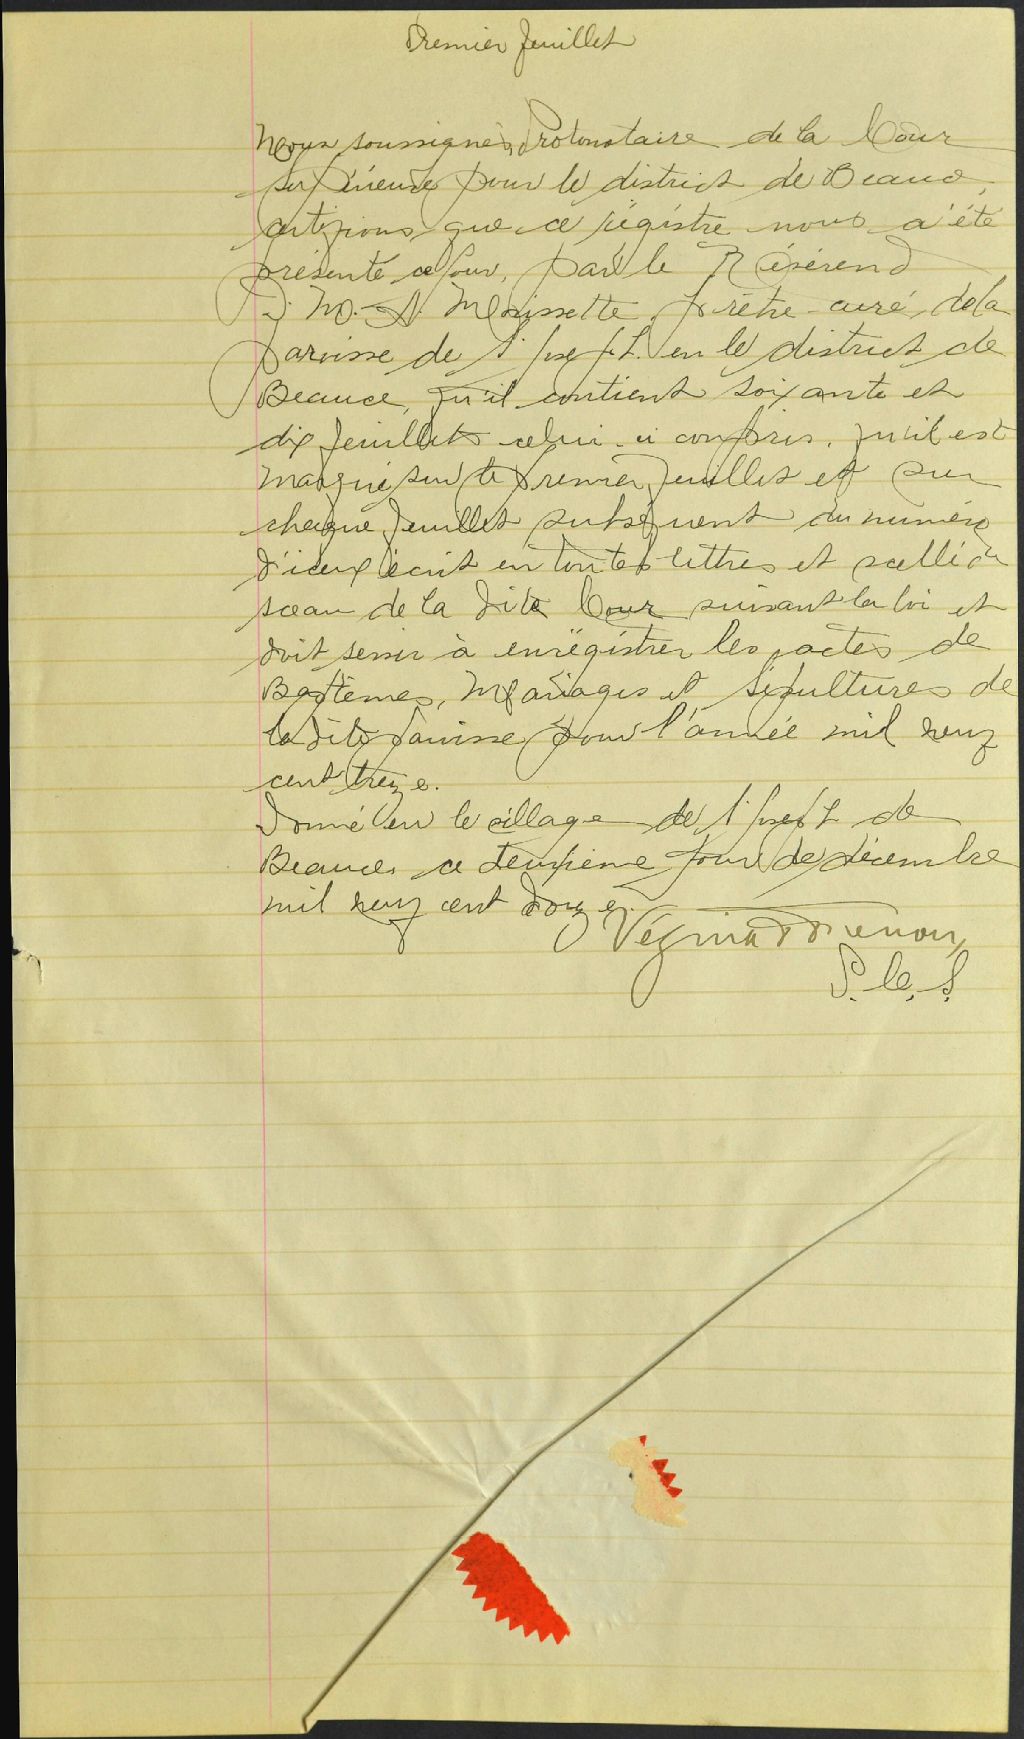 Premier feuillet
Nous soussignés, Protonotaire de la Cour
supérieure pour le district de Beauce,
certifions que ce régistre nous a été
présenté ce jour, par le Révérend
M. Morissette, prêtre-curé, de la
paroisse de St Joseph en le district de
Beauce, qu'il contient soixante et
dix feuillets celui-ci compris, qu'il est
marqué sur le premier feuillet et sur
chaque feuillet subséquent du numéro
d'iceux écrit en toutes lettres et scellé du
sceau de la dite Cour suivant la loi et
doit servir à enrégistrer les actes de
Baptêmes, Mariages et sépultures de
la dite Paroisse pour l'année mil neuf
cent treize.
Donné en le village de St Joseph de
Beauce, ce deuxième jour de décembre
mil neuf cent douze.
Vézina
P. C. S.